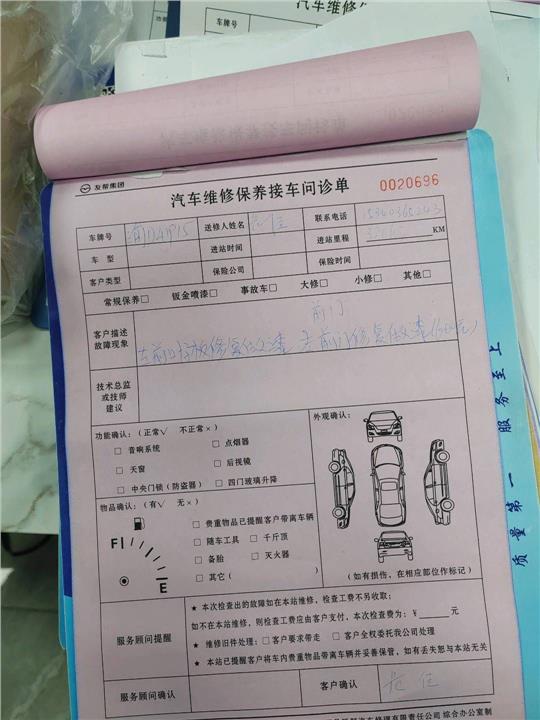 汽车维修
车牌号
友帮集团
汽车维修保养接车问诊单
0020696
车牌号 送修人姓名 联系电话
车 型 进站时间 进站里程 KM
客户类型 保险公司 保险时间
常规保养□ 钣金喷漆□ 事故车□ 大修□ 小修□ 其他□
前门
客户描述
故障现象
技术总监
或技师
建议
功能确认：（正常√ 不正常×）
□ 音响系统 □ 点烟器
□ 天窗 □ 后视镜
□ 中央门锁（防盗器） □ 四门玻璃升降
外观确认：
物品确认：（有√ 无×）
□ 贵重物品已提醒客户带离车辆
□ 随车工具 □ 千斤顶
□ 备胎 □ 灭火器
□ 其它（
F
E
（如有损伤，在相应部位作标记）
服务顾问提醒
★ 本次检查出的故障如在本站维修，检查工费不另收取；
如不在本站维修，则检查工费应由客户支付，本次检查费为：￥ 元
★ 维修旧件处理：□ 客户要求带走 □ 客户全权委托我公司处理
★ 本站已提醒客户将车内贵重物品带离车辆并妥善保管，如有丢失恕与本站无关
服务顾问确认 客户确认
汽车修理有限责任公司 综合办公室制
质量第一 服务至上